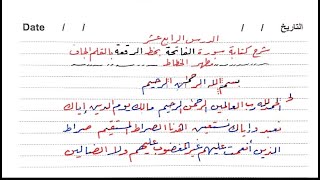 التاريخ / / Date / /
الدرس الرابع عشر
شرح كتابة سورة الفاتحة بخط الرقعة بالقلم الجاف
مظهر الخطاط
بسم الله الرحمن الرحيم
الحمد لله رب العالمين الرحمن الرحيم مالك يوم الدين إياك
نعبد وإياك نستعين اهدنا الصراط المستقيم صراط
الذين أنعمت عليهم غير المغضوب عليهم ولا الضالين